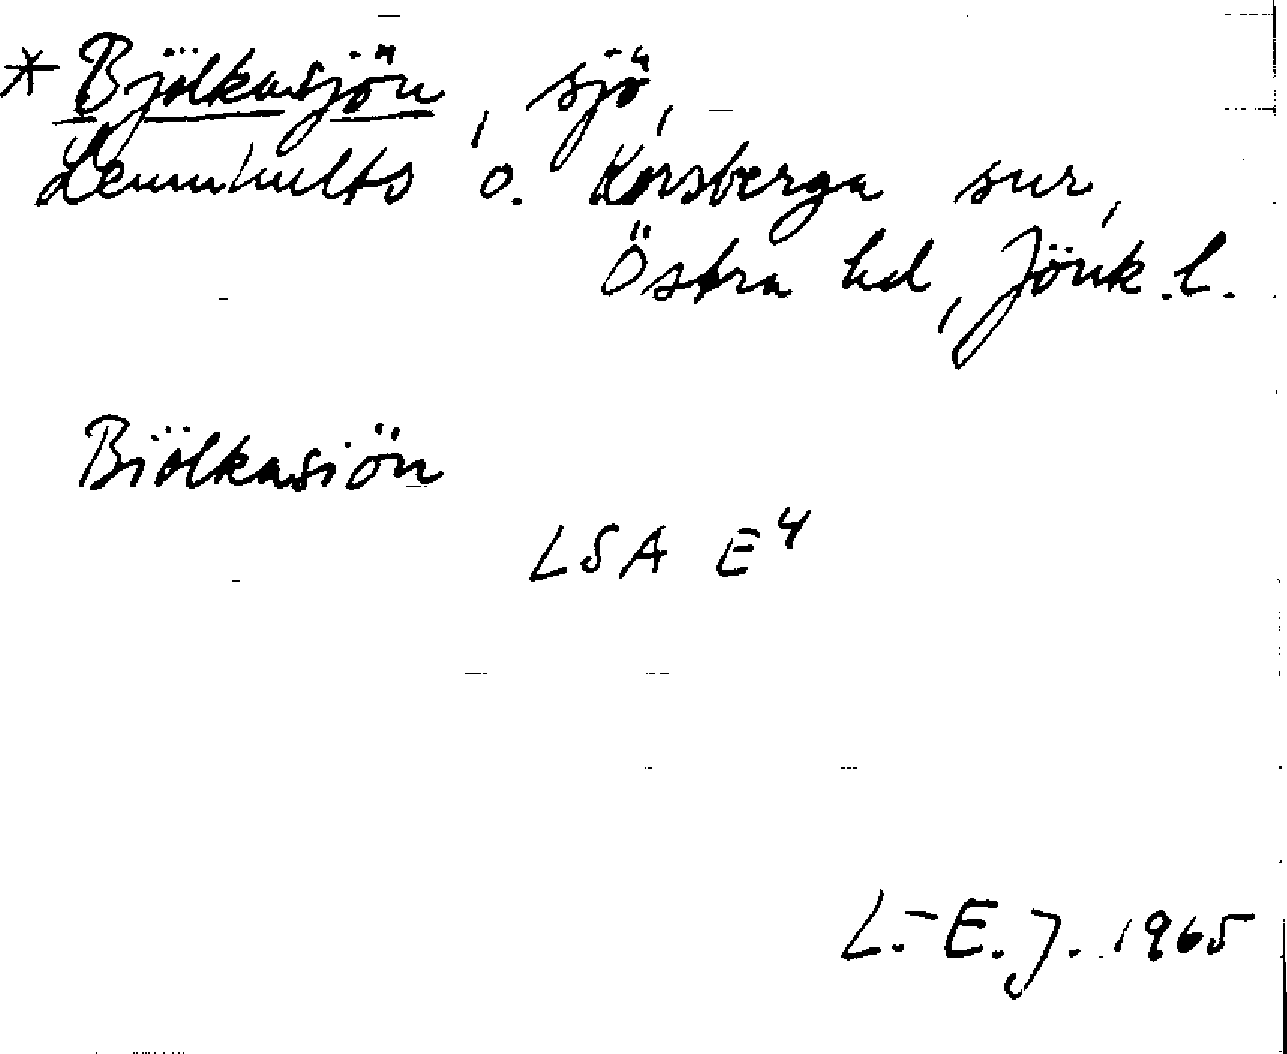 * Bjölkasjön, sjö,
Lemnhults o. Korsberga snr,
Östra hd, Jönk. l.
Biölkasiön
LSA E4
L.-E. J. 1965